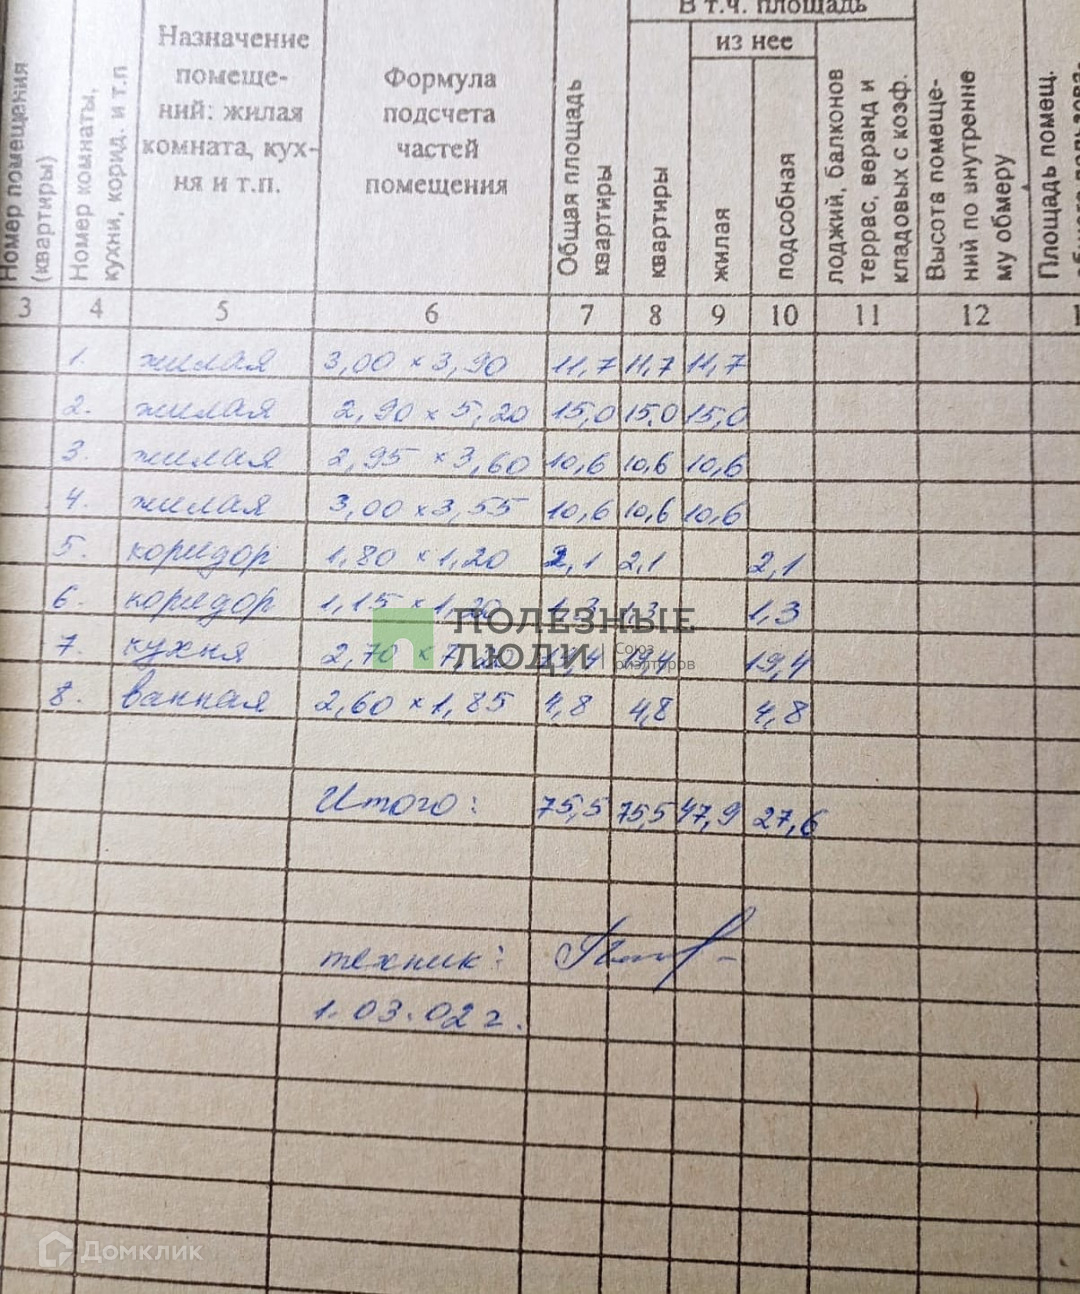 В т.ч. площадь
из нее
Номер помещения (квартиры)
Номер комнаты, кухни, корид. и т.п
Назначение
помеще-
ний: жилая
комната, кух-
ня и т.п.
Формула
подсчета
частей
помещения
Общая площадь квартиры
квартиры
жилая
подсобная
лоджий, балконов
террас, веранд и
кладовых с коэф.
Высота помеще-
ний по внутренне
му обмеру
Площадь помещ.
3 4 5 6 7 8 9 10 11 12 1
1. жилая 3,00 × 3,90 11,7 11,7 11,7
2. жилая 2,90 × 5,20 15,0 15,0 15,0
3. жилая 2,95 × 3,60 10,6 10,6 10,6
4. жилая 3,00 × 3,55 10,6 10,6 10,6
5. коридор 1,80 × 1,20 2,1 2,1 2,1
6. коридор 1,15 × 1,20 1,3 1,3 1,3
7. кухня 2,70 × 7,20 19,4 19,4 19,4
8. ванная 2,60 × 1,85 4,8 4,8 4,8
Итого: 75,5 75,5 47,9 27,6
техник:
1.03.02 г.
ПОЛЕЗНЫЕ
ЛЮДИ
Союз
риэлторов
Домклик